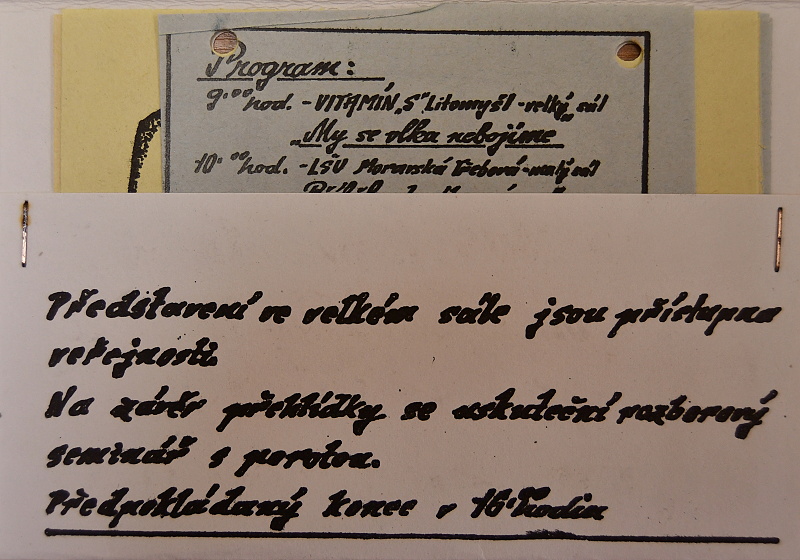 Program:
9.00 hod. - VITAMÍN „S" Litomyšl - velký sál
„My se vlka nebojíme"
10.00 hod. - LŠU Moravská Třebová - malý sál
Představení ve velkém sále jsou přístupna
veřejnosti.
Na závěr přehlídky se uskuteční rozborový
seminář s porotou.
Předpokládaný konec v 16.00 hodin